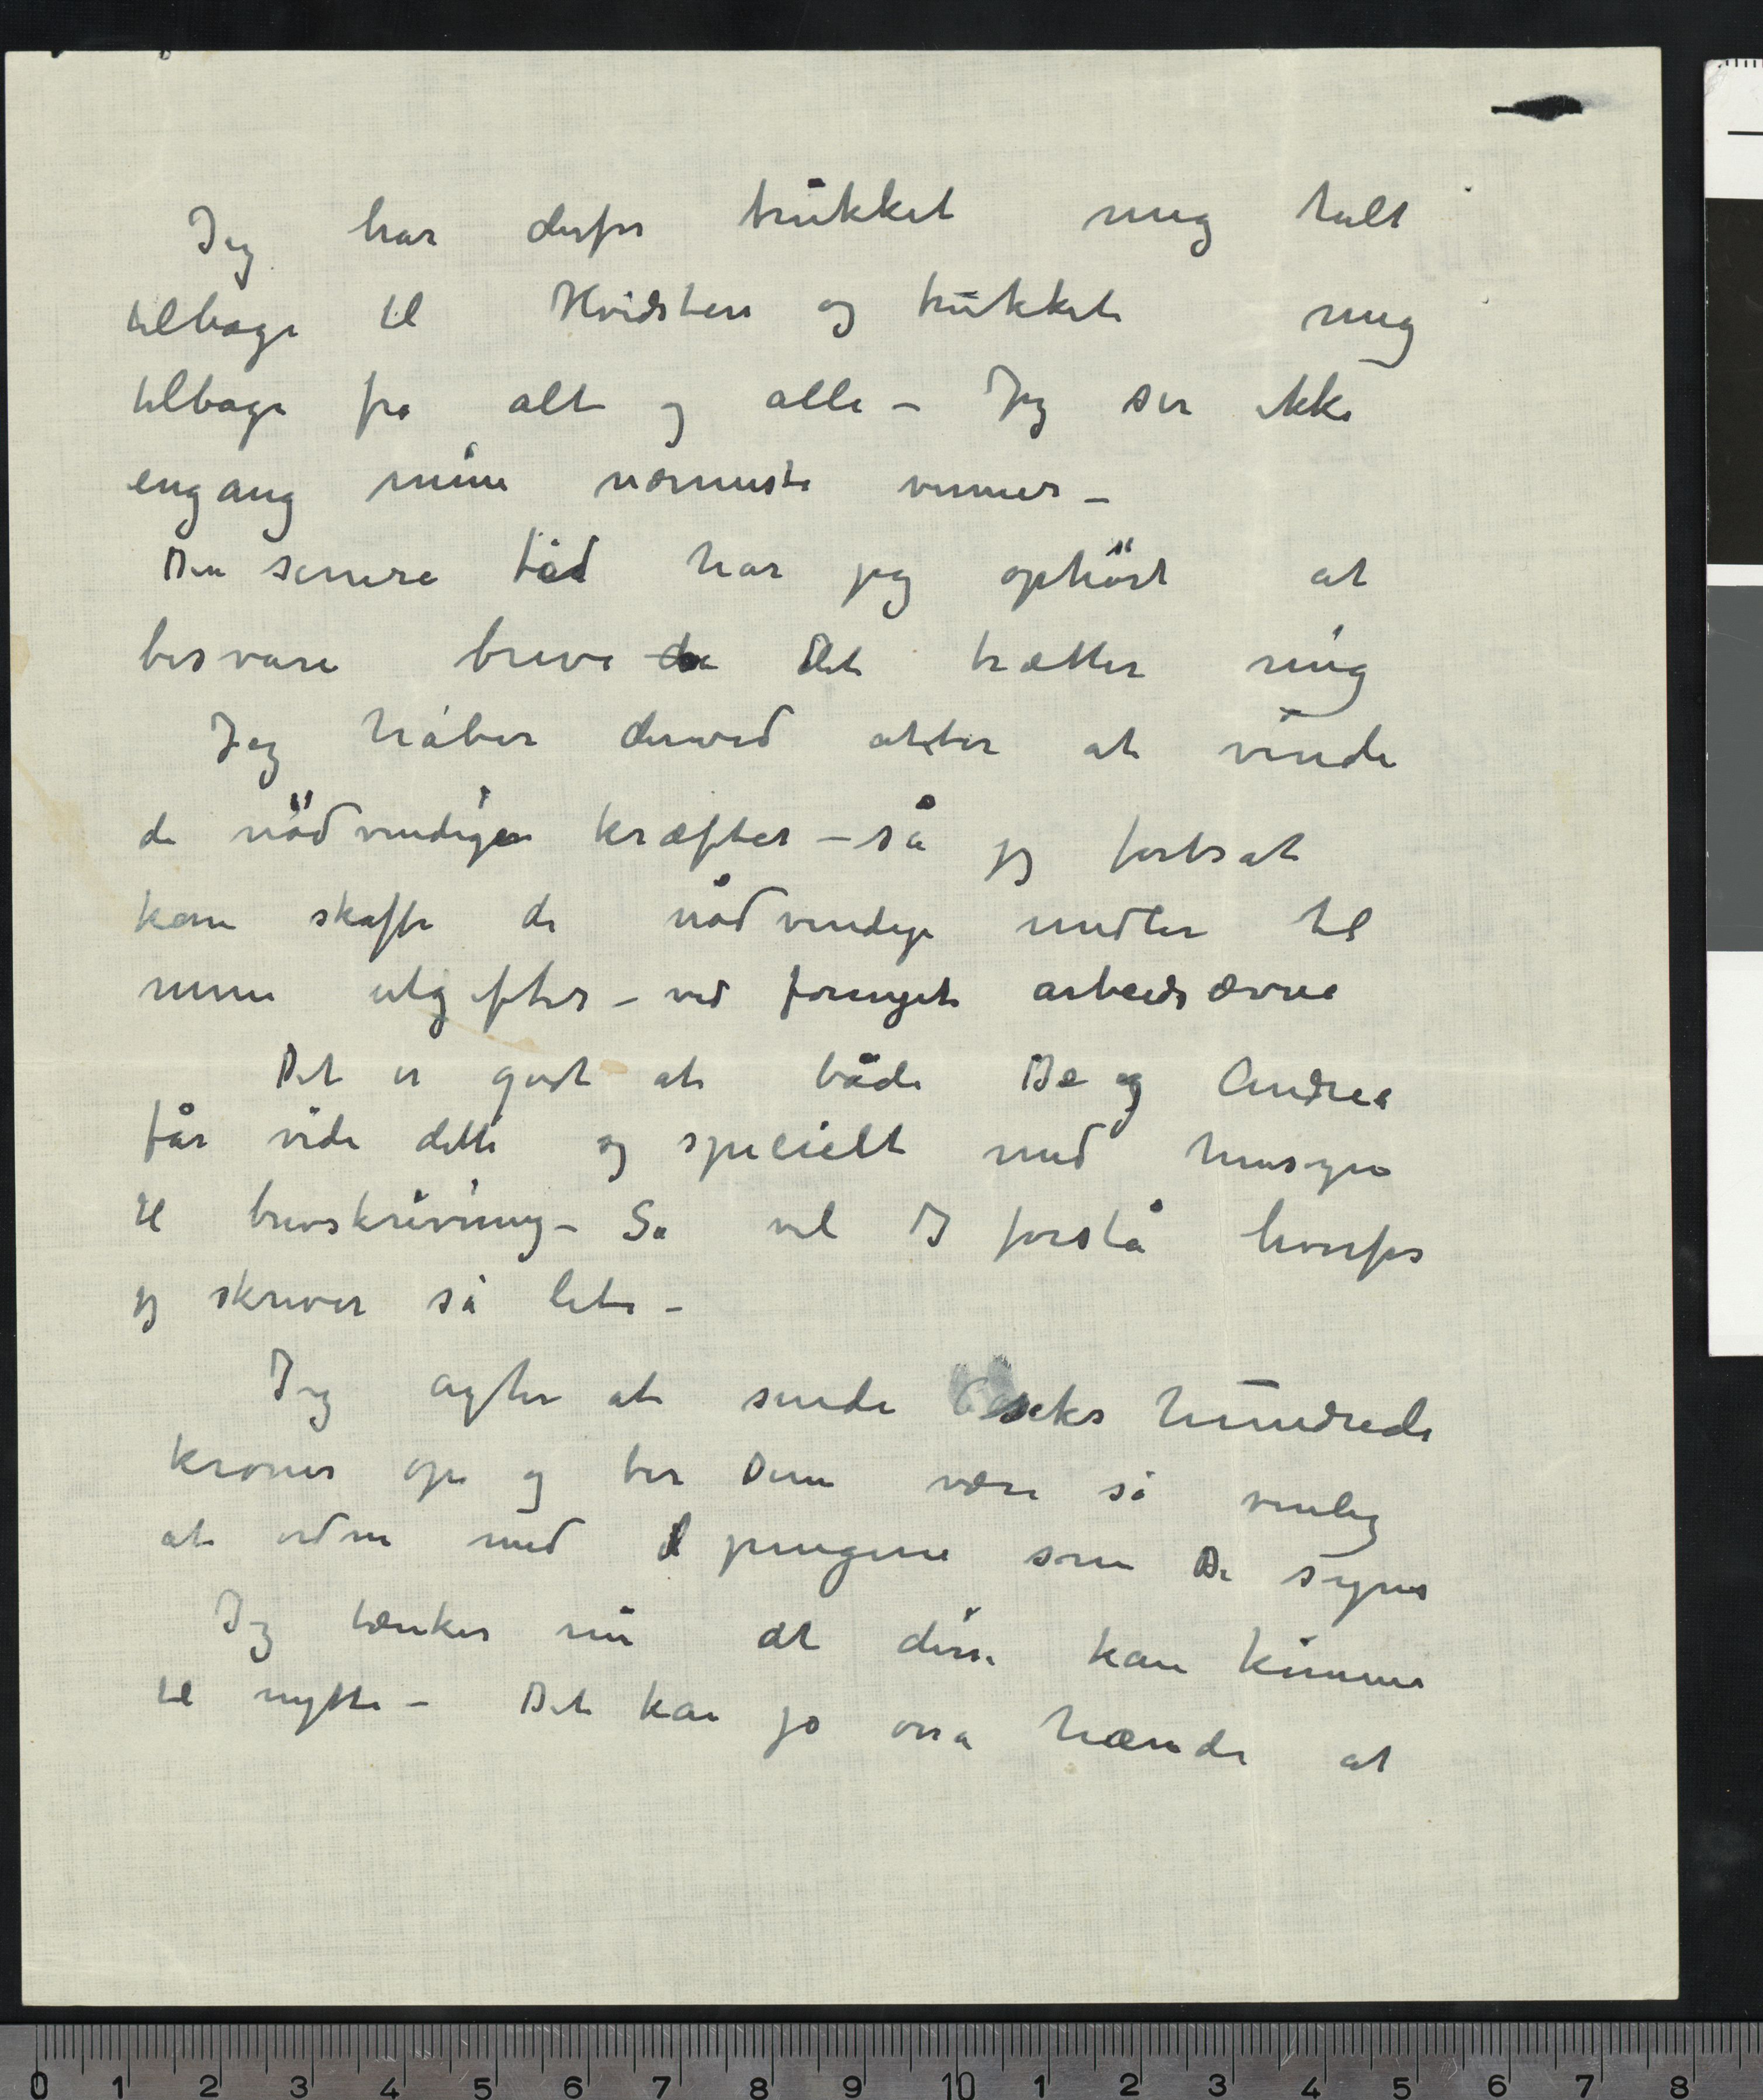 Jeg har derfor trukket mig helt
tilbage til Hvidsten og trukket mig
tilbage fra alt og alle – Jeg ser ikke
engang mine nærmeste venner –
Den senere tid har jeg ophört at
besvare breve de Det trætter mig
Jeg håber derved atter at vinde
de nödvendige kræfter – så jeg fortsat
kan skaffe de nödvendige midler til
mine utgifter – ved fornyet arbeidsævne
Det er godt at både De og Andrea
får vide dette og specielt med hensyn
til brevskrivning – Så vil I forstå hvorfor
jeg skriver så lite –
Jeg agter at sende seks hundrede
kroner op og ber Dem være så venlig
at ordne med pengene som De synes
Jeg tænker nu at disse kan komme
til nytte – Det kan jo osså hænde at
0 1 2 3 4 5 6 7 8 9 10 1 2 3 4 5 6 7 8